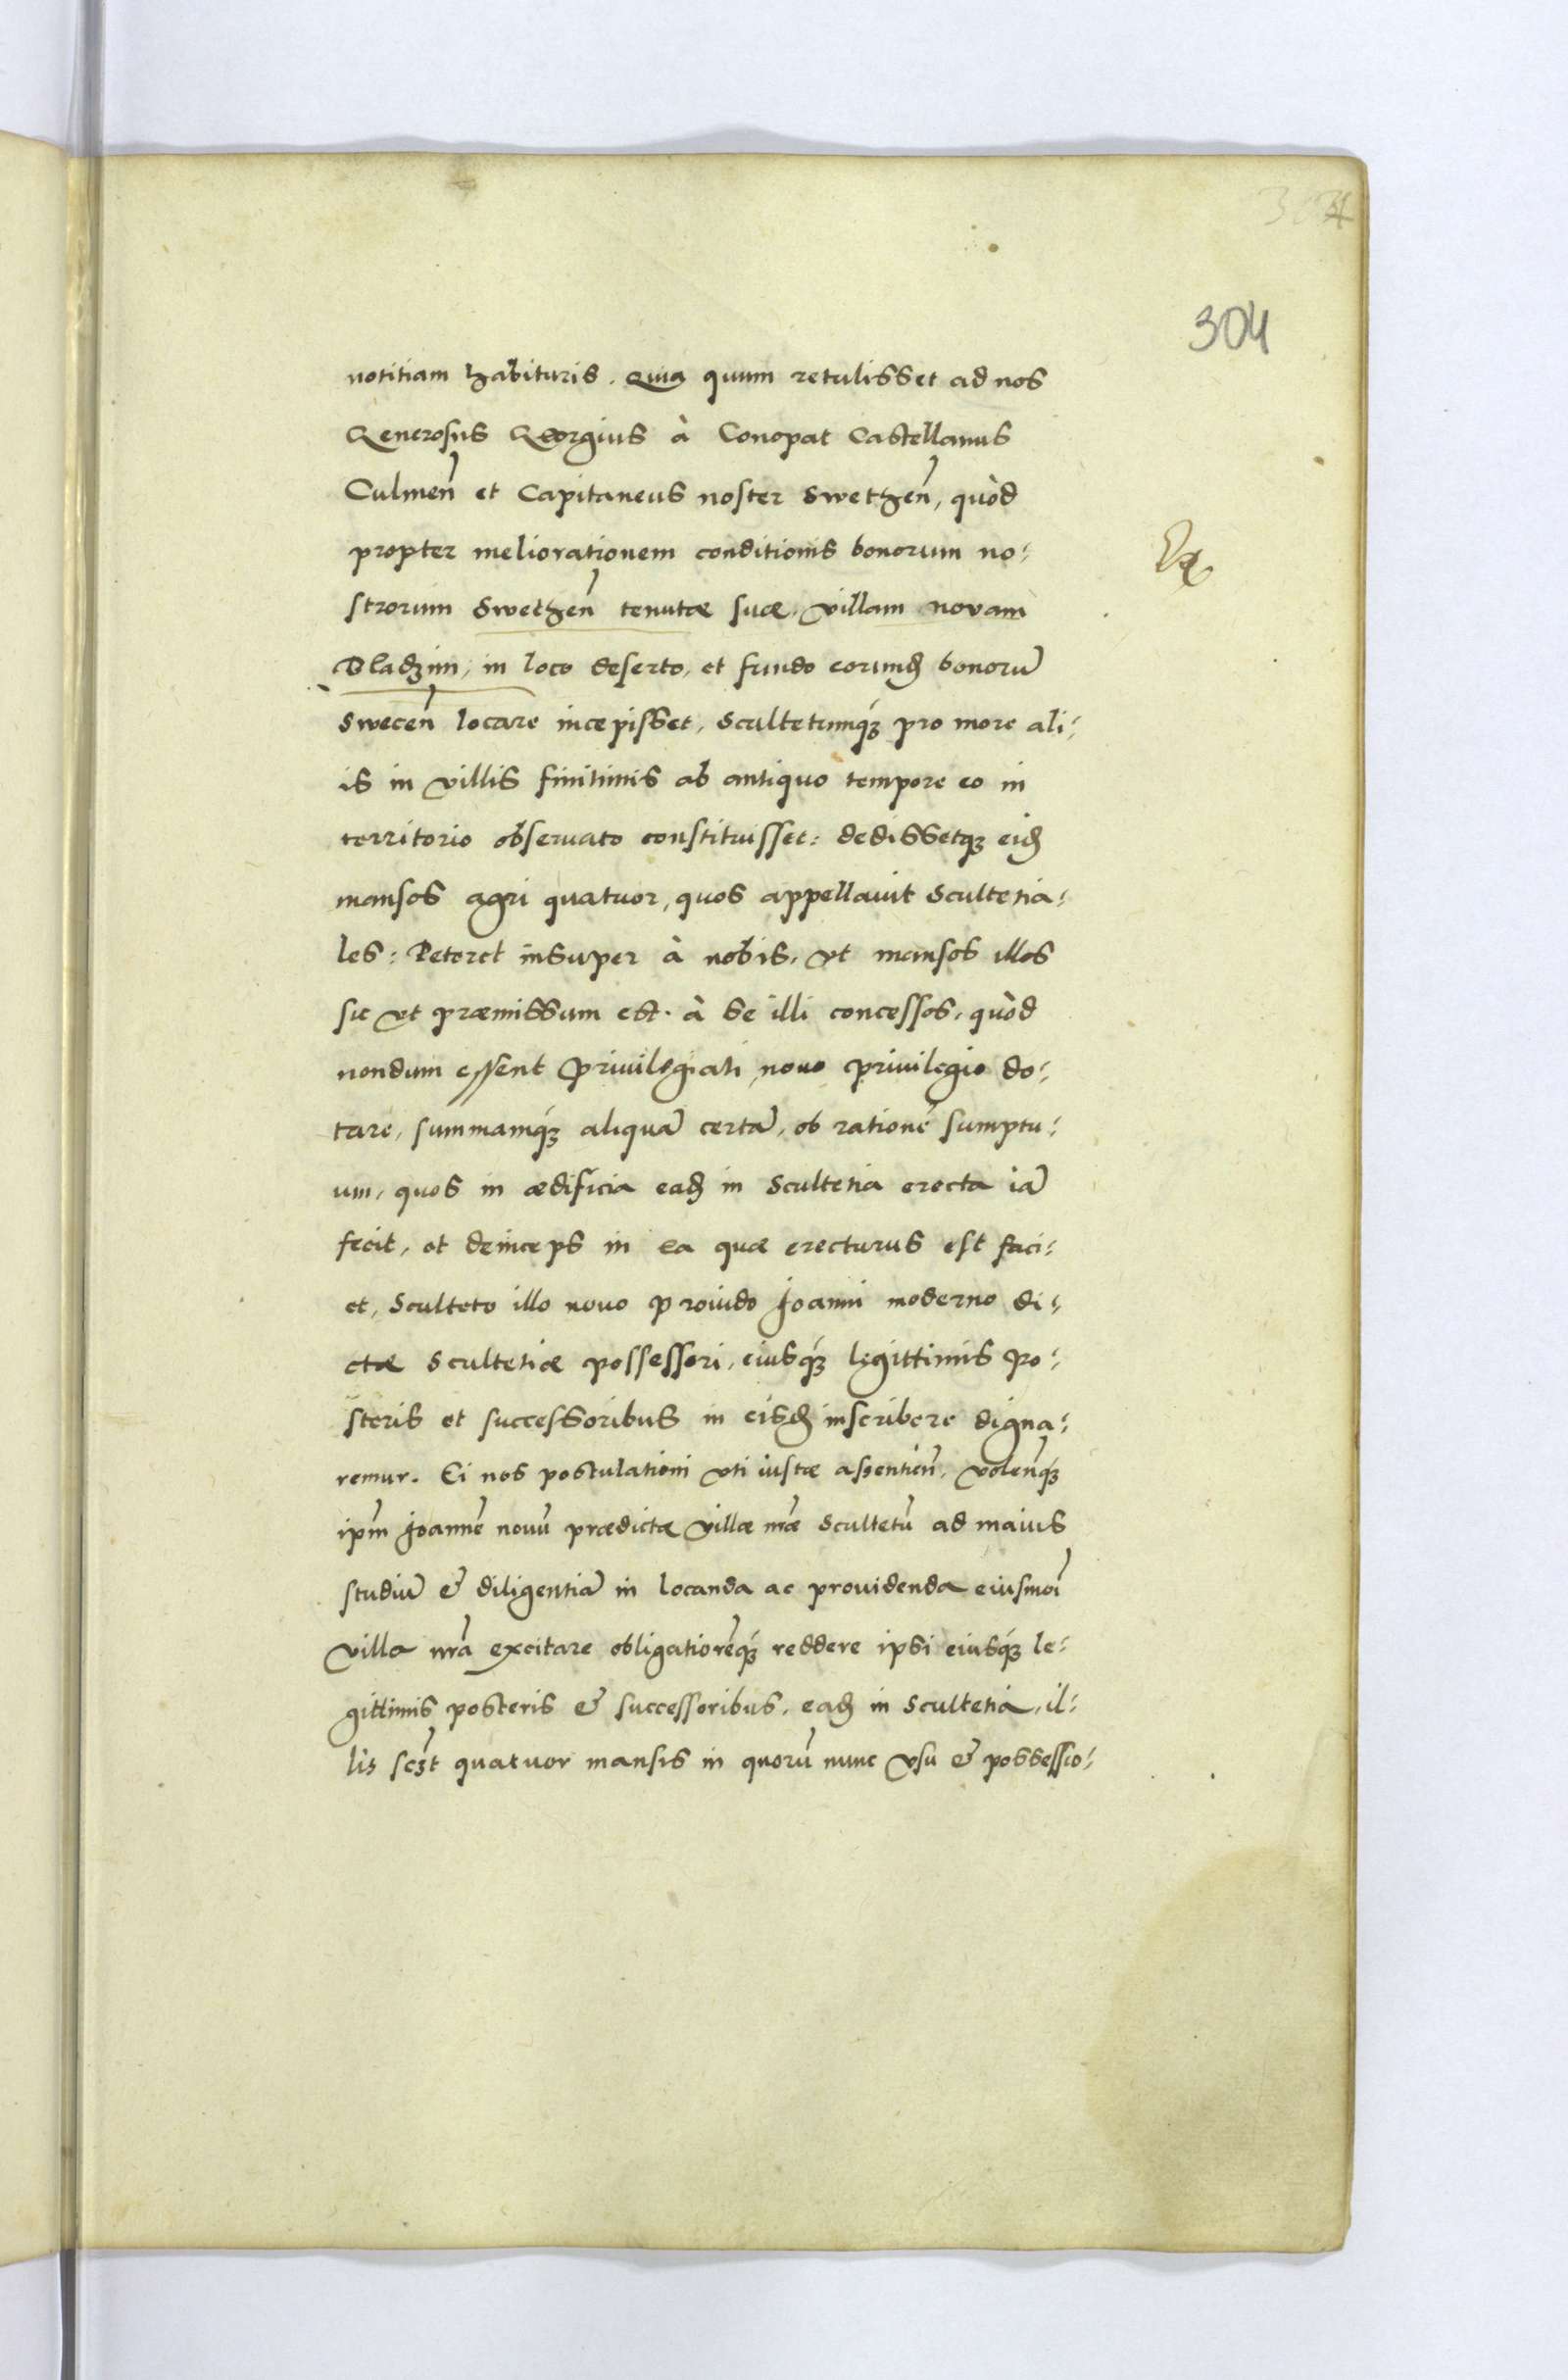 304
304
notitiam habituris. Quia quum retulisset ad nos
Generosus Georgius à Conopat Castellanus
Culmen̄ et Capitaneus noster Swethen̄, quòd
propter meliorationem conditionis bonorum no:
strorum Swethen̄ tenutæ suæ, villam novam
Bladzim, in loco deserto, et fundo eorumdȝ bonorū
Swecen̄ locare incepisset, Scultetumqꝫ pro more ali:
is in villis finitimis ab antiquo tempore eo in
territorio obseruato constituisset: dedissetqꝫ eidȝ
mansos agri quatuor, quos appellauit Scultetia:
les: Peteret insuper à nobis, vt mansos illos
sic vt præmissum est. à se illi concessos, quòd
nondum essent priuilegiati, nouo priuilegio do:
tare, summamqꝫ aliquā certā, ob rationē sumptu:
um, quos in ædificia eadȝ in Scultetia erecta iā
fecit, et deinceps in ea quæ erecturus est faci:
et, Sculteto illo nouo prouido Joanni moderno di:
ctæ Scultetiæ possessori, eiusqꝫ legittimis po:
steris et successoribus in eisdȝ inscribere digna:
remur. Ei nos postulationi vti iustæ assentien̄, volen̄qꝫ
ipm̄ Joannē nouū prædictæ villæ nr̄æ Scultetū ad maius
studiū & diligentiā in locanda ac prouidenda eiusmōi
villa nr̄a excitare obligatiorēqꝫ reddere ipsi eiusqꝫ le:
gittimis posteris & successoribus, eadȝ in Scultetia, il:
lis sczt quatuor mansis in quorū nunc vsu & possessio: